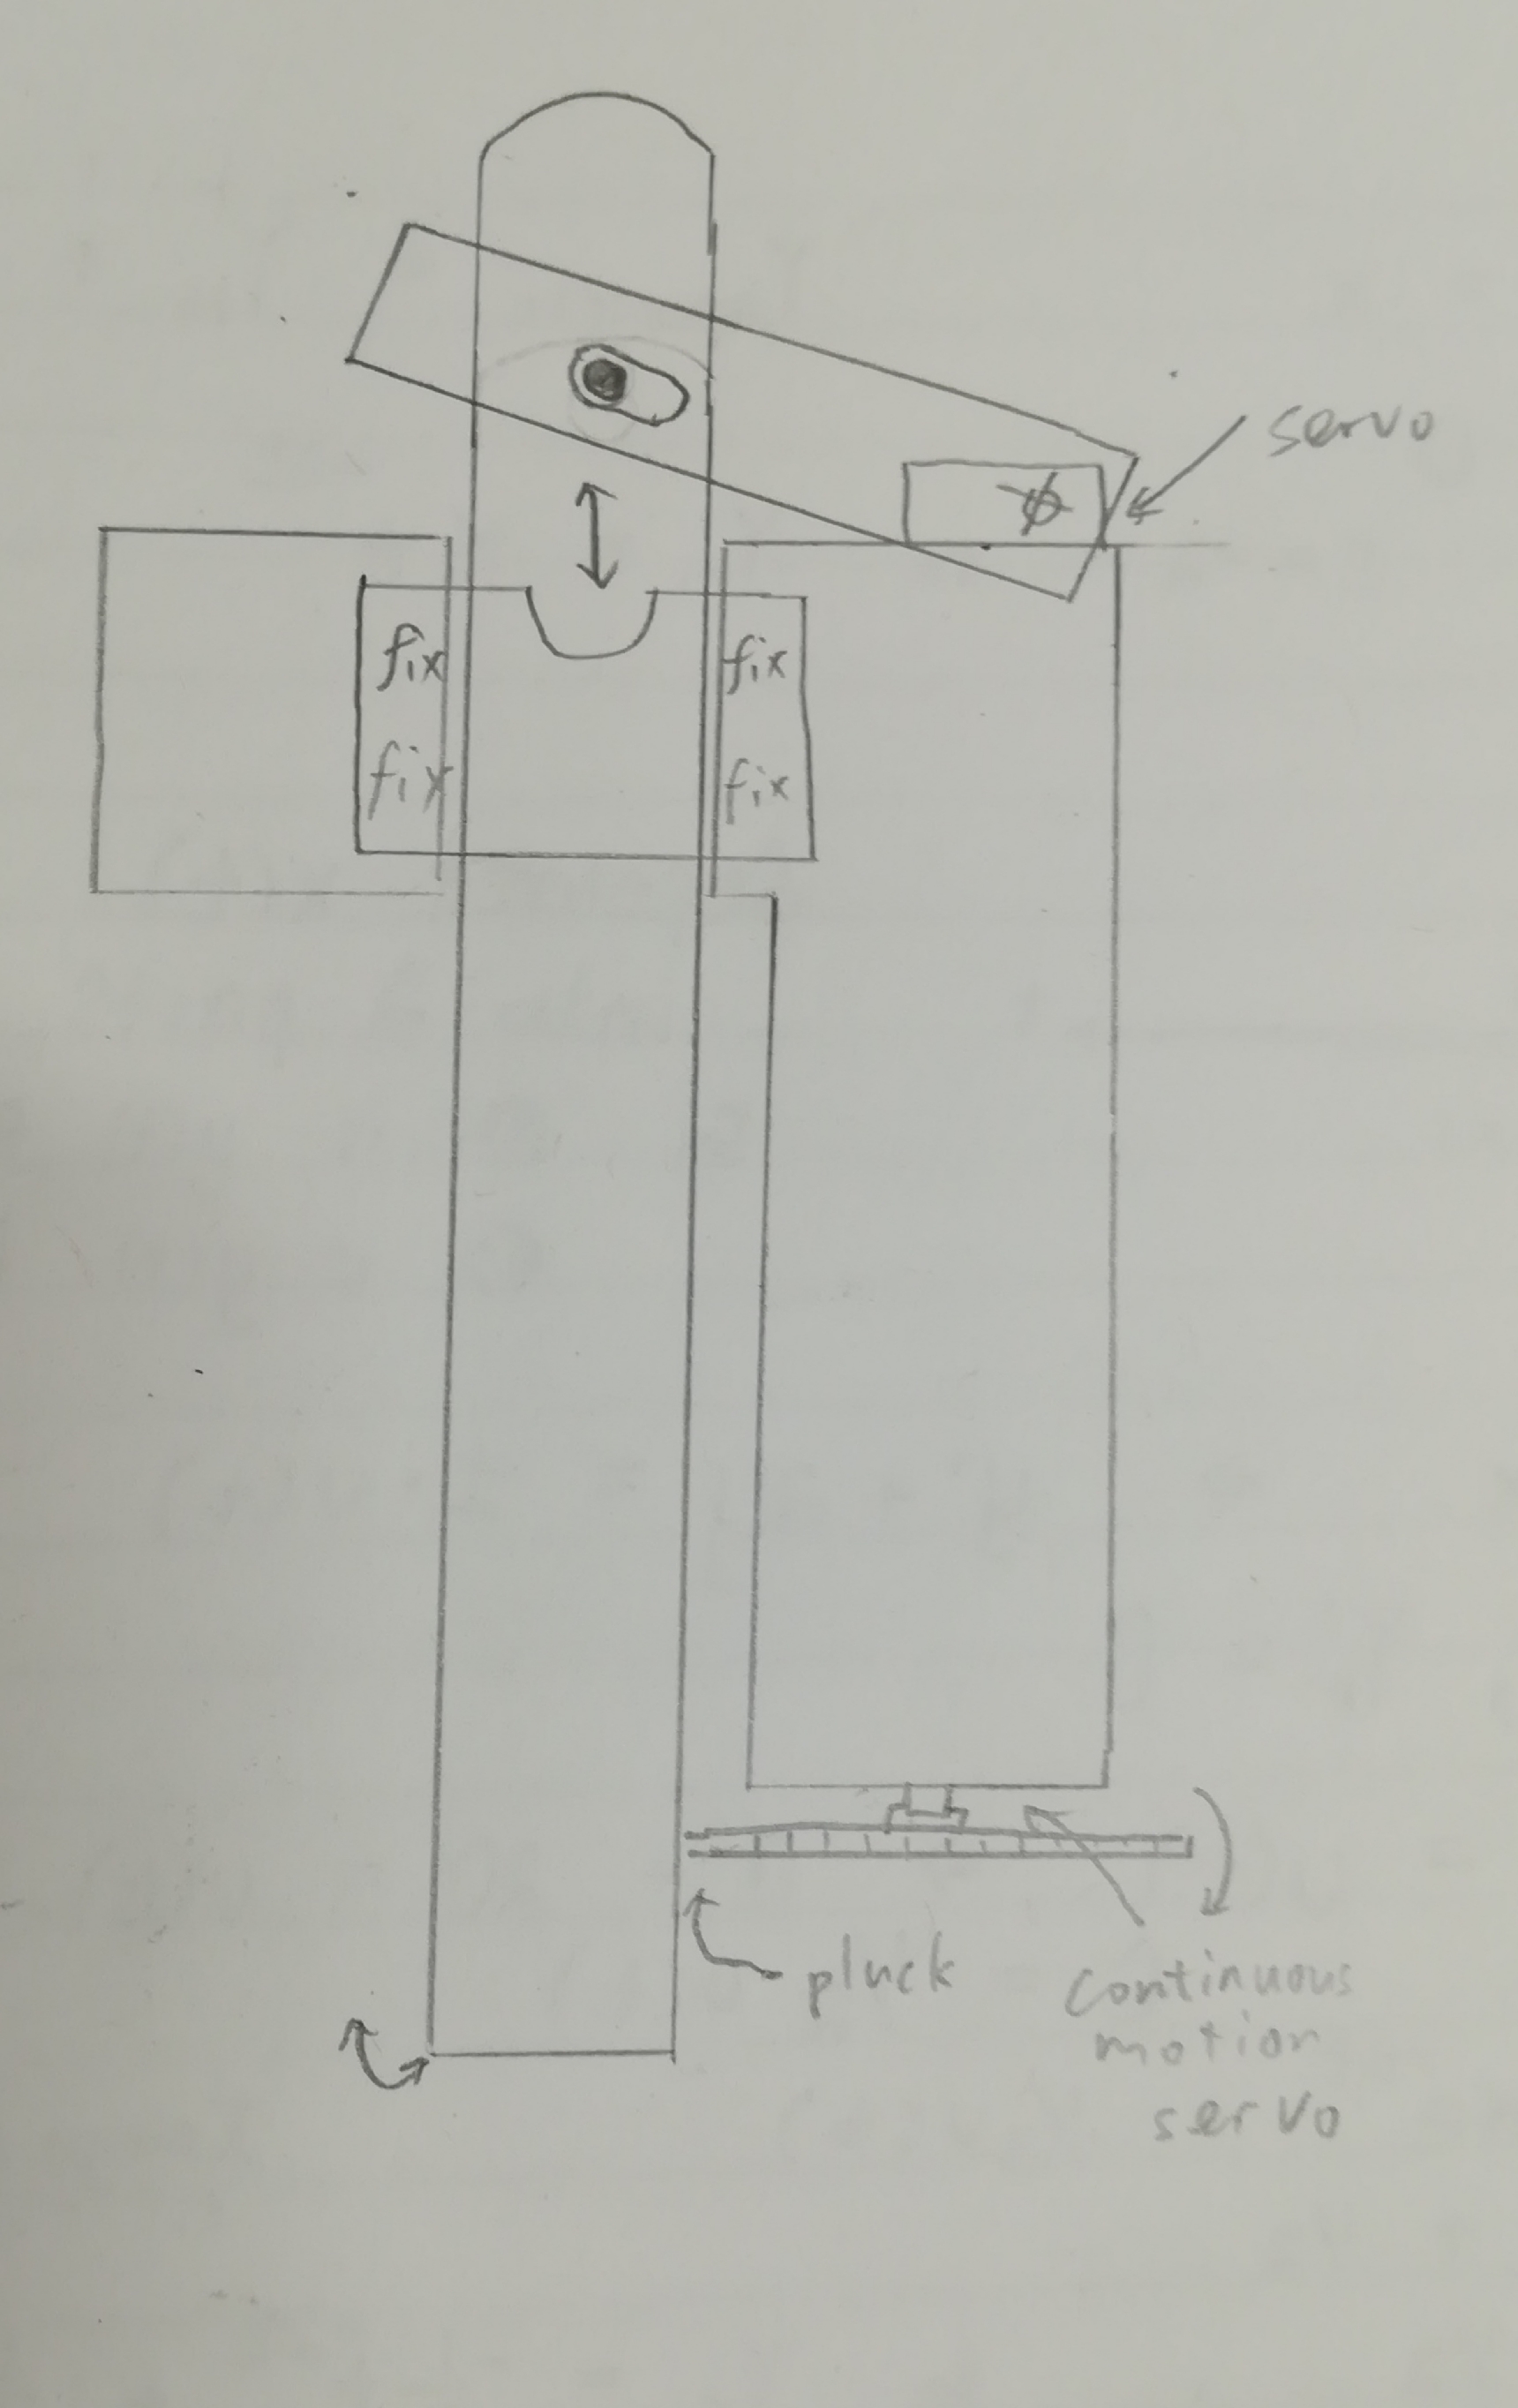 servo
fix fix
fix fix
pluck
continuous
motion
servo